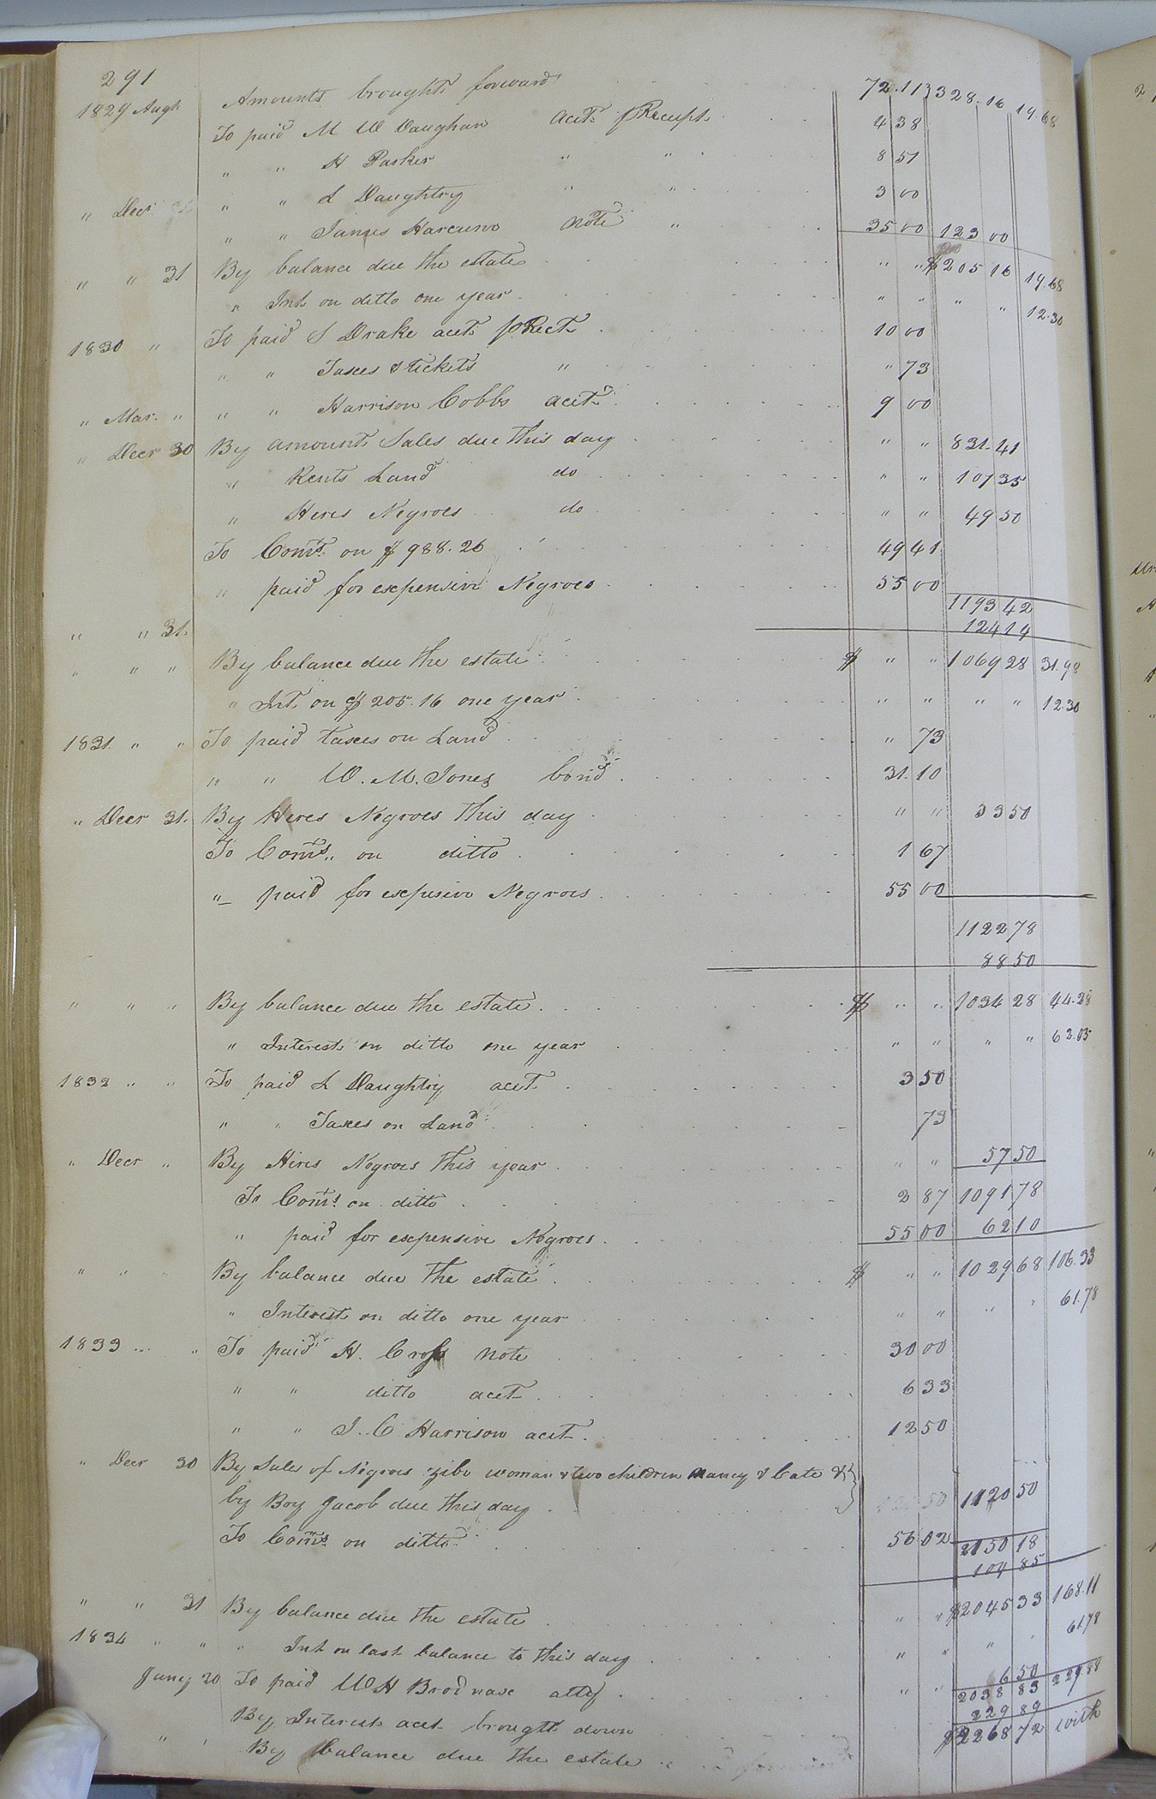 291
1829 Augt Amounts brought forward 72.11 328.16 19.68
To paid M W Vaughan acct p Recept 4 38
" " H Parker " " 8 51
" Decr " " L Daughtry " " 3 00
" " James Harcurvo note " 35 00 123 00
" " 31 By balance due the estate " " $205 16 19.68
" Int on ditto one year " " " " 12.30
1830 " To paid S Drake acct p Rect 10 00
" " Taxes & tickets " " 73
" Mar. " " " Harrison Cobbs acct 9 00
" Decr 30 By amount Sales due this day " " 831.41
" Rents Land do " " 107 35
" Hires Negroes do " " 49 50
To Coms on $988.26 49 41
" paid for expensive Negroes 55 00
1193 42
" " 31. 124 14
" " " By balance due the estate $ " " 1069 28 31.98
" Int on $205.16 one year " " " " 12.30
1831. " " To paid taxes on Land " 73
" " W. M. Jones bond 31.10
" Decr 31. By Hires Negroes this day " " 33 50
To Coms " on ditto 1 67
" paid for expensive Negroes 55 00
1122 78
88 50
" " " By balance due the estate $ " " 1034 28 44.28
" Interest on ditto one year " " " " 62.05
1832 " " To paid L Daughtry acct 3 50
" " Taxes on Land 73
" Decr " By Hires Negroes this year " " 57 50
To Coms on ditto 2 87 1091 78
" paid for expensive Negroes 55 00 62 10
" " By balance due the estate $ " " 1029 68 106.33
" Interest on ditto one year " " " " 61.78
1833 " " To paid H. Cross note 30 00
" " ditto acct 6 33
" " J. C Harrison acct 12 50
" Decr 30 By Sales of Negroes woman & two children Nancy & Cate &
by Boy Jacob due this day 1120 50
To Coms on ditto 56 02 2150 18
104 85
" " 31 By balance due the estate " " $2045 33 168.11
1834 " " " Int on last balance to this day " " " " 61.78
6 50
Jany 20 To paid W H Brodnax atty " " 2038 83 229.89
By Interest acct brought down 229 89
" " By balance due the estate $2268 72 with